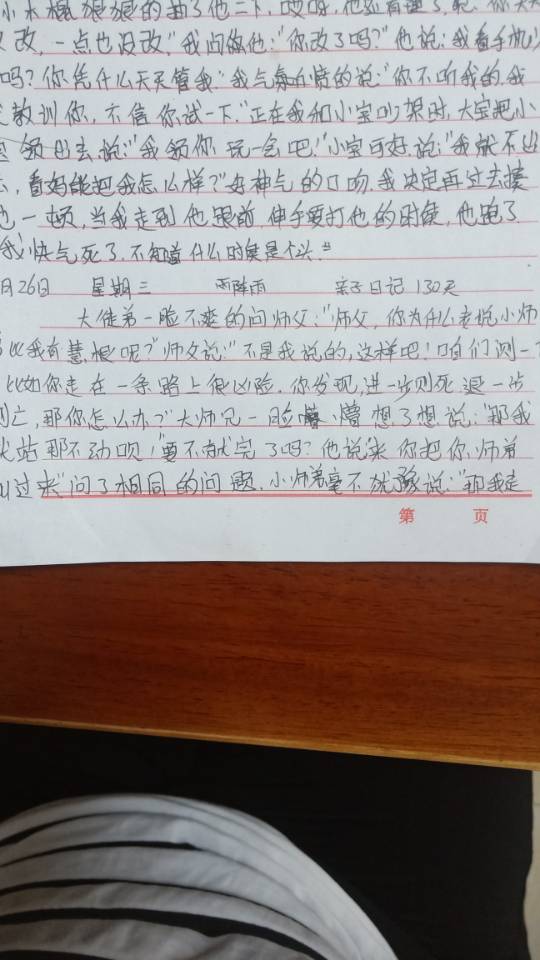 小木棍狠狠的抽了他二下,哎呀,他还有理了,说:你天天
改,一点也没改."我问做他:"你改了吗?"他说:我看手机少
吗?你凭什么天天管我."我气愤的说:"你不听我的.我
教训你,不信你试一下."正在我和小宝吵架时,大宝把小
领出去说:"我领你玩一会吧!"小宝可好说:"我就不出
,看妈能把我怎么样?"好神气的口吻.我决定再过去揍
他一顿,当我走到他跟前,伸手要打他的时候,他跑了
我快气死了.不知道什么时候是个头."
月26日 星期三 雨阵雨 亲子日记130天
大徒弟一脸不爽的问师父:"师父,你为什么老说小师
比我有慧根呢?"师父说:"不是我说的,这样吧!咱们测一下
比如你走在一条路上很凶险.你发现,进一步则死退一步
则亡,那你怎么办?"大师兄一脸懵想了想说:"那我
就站那不动呗!要不就完了吗?他说"来你把你师弟
叫过来"问了相同的问题.小师弟毫不犹豫说:"那我走
第 页